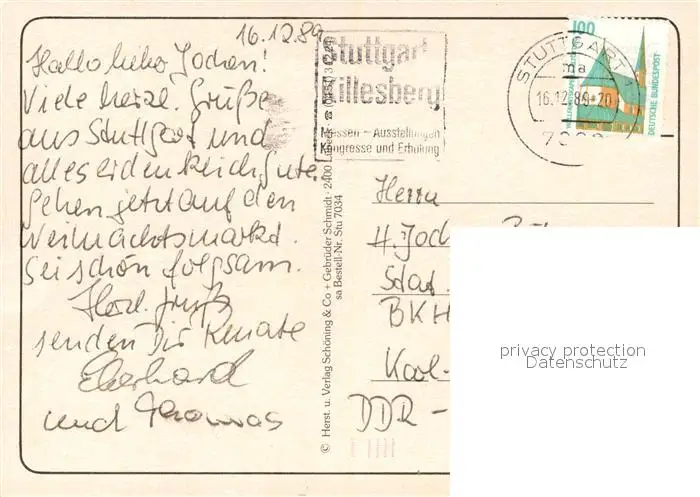 16.12.89
Hallo lieber Jochen!
Viele herzl. Grüße
aus Stuttgart und
alles
Gehen jetzt auf den
Weihnachtsmarkt.
Sei schön folgsam.
Herzl. Grüße
senden Dir Renate
Eberhard
und Thomas
Stuttgart
Killesberg
Messen – Ausstellungen
Kongresse und Erholung
STUTTGART 1
ma
16.12.89-20
100
DEUTSCHE BUNDESPOST
© Herst. u. Verlag Schöning & Co + Gebrüder Schmidt · 2400 Lübeck
sa Bestell-Nr. Stu 7034
Herrn
H. Joch
Stat.
BKH
DDR -
privacy protection
Datenschutz